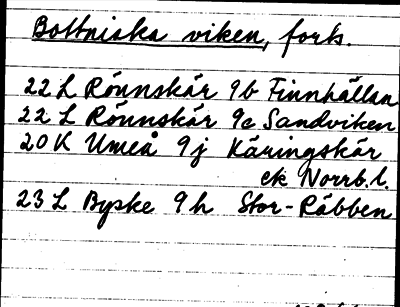 Bottniska viken, forts.
22 L Rönnskär 9b Finnhällan
22 L Rönnskär 9c Sandviken
20 K Umeå 9j Käringskär
ek Norrb.l.
23 L Byske 9h Stor-Räbben